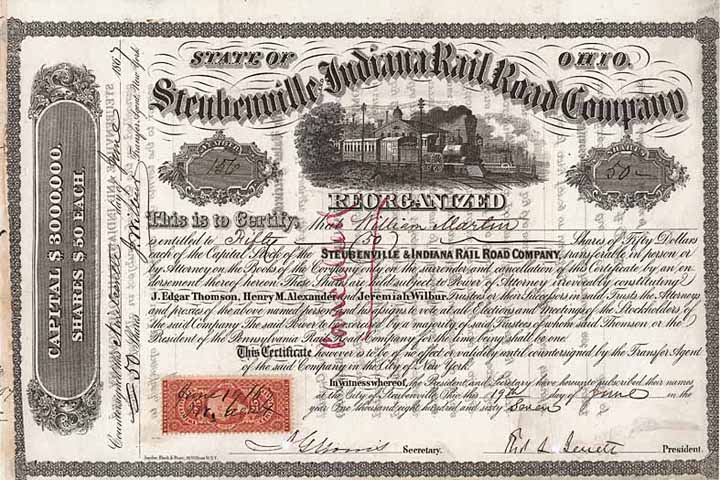 STATE OF OHIO.
Steubenville & Indiana Rail Road Company
NUMBER
SHARES
50
REORGANIZED
This is to Certify, that William Martin
is entitled to Fifty (50) Shares of Fifty Dollars
each of the Capital Stock of the STEUBENVILLE & INDIANA RAIL ROAD COMPANY, transferable in person or
by Attorney on the Books of the Company only on the surrender and cancellation of this Certificate by an en-
dorsement thereof hereon. These Shares are held subject to Power of Attorney irrevocably constituting
J. Edgar Thomson, Henry M. Alexander and Jeremiah Wilbur, Trustees or their Successors in said Trusts, the Attorneys
and proxies of the above named person and his assigns to vote at all Elections and Meetings of the Stockholders of
the said Company. The said Power to be exercised by a majority of said Trustees of whom said Thomson or the
President of the Pennsylvania Rail Road Company for the time being shall be one.
This Certificate however is to be of no effect or validity until countersigned by the Transfer Agent
of the said Company in the City of New York.
In witness whereof, the President and Secretary have hereunto subscribed their names
at the City of Steubenville Ohio this 19th day of June in the
year One Thousand eight hundred and sixty Seven
Secretary.
President.
CAPITAL $3000,000.
SHARES $50 EACH.
50 Shares
day of June 1867
Transfer Agent, New York
Cancelled
June 19/67